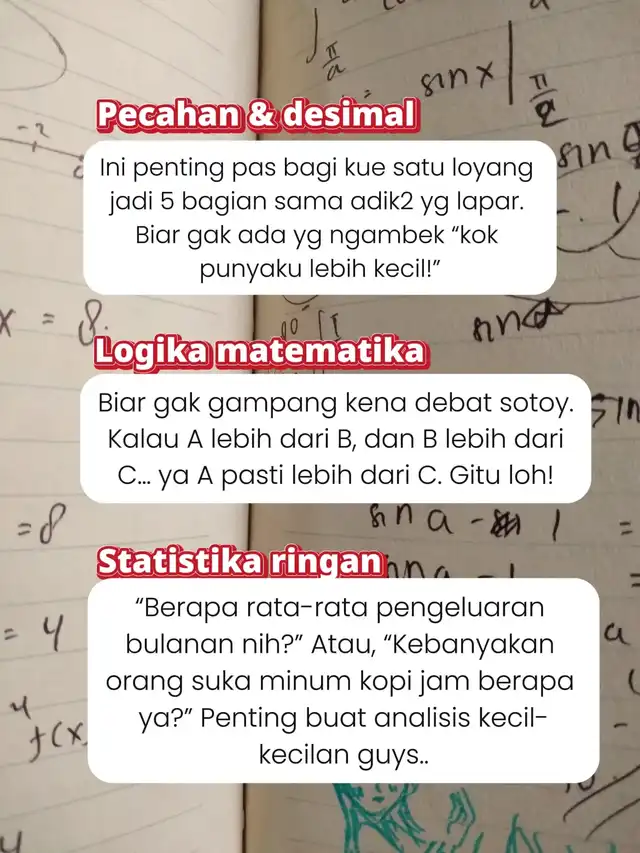 Pecahan & desimal
Ini penting pas bagi kue satu loyang
jadi 5 bagian sama adik2 yg lapar.
Biar gak ada yg ngambek “kok
punyaku lebih kecil!”
Logika matematika
Biar gak gampang kena debat sotoy.
Kalau A lebih dari B, dan B lebih dari
C... ya A pasti lebih dari C. Gitu loh!
Statistika ringan
“Berapa rata-rata pengeluaran
bulanan nih?” Atau, “Kebanyakan
orang suka minum kopi jam berapa
ya?” Penting buat analisis kecil-
kecilan guys..
-2
x = 8
=8
= 4
4
f(x
π
sin x
π
2
sin
sin a
sin
sin a - 1
a